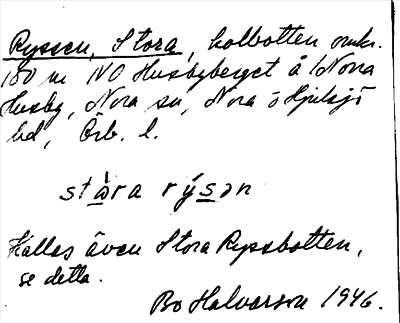 Ryssen, Stora, kolbotten omkr.
150 m NO Husbyberget å Norra
Husby, Nora sn, Nora o Hjulsjö
bd, Örb. l.
stɷ̀ra rýsən
Kallas även Stora Ryssbotten,
se detta.
Bo Halvarson 1946.